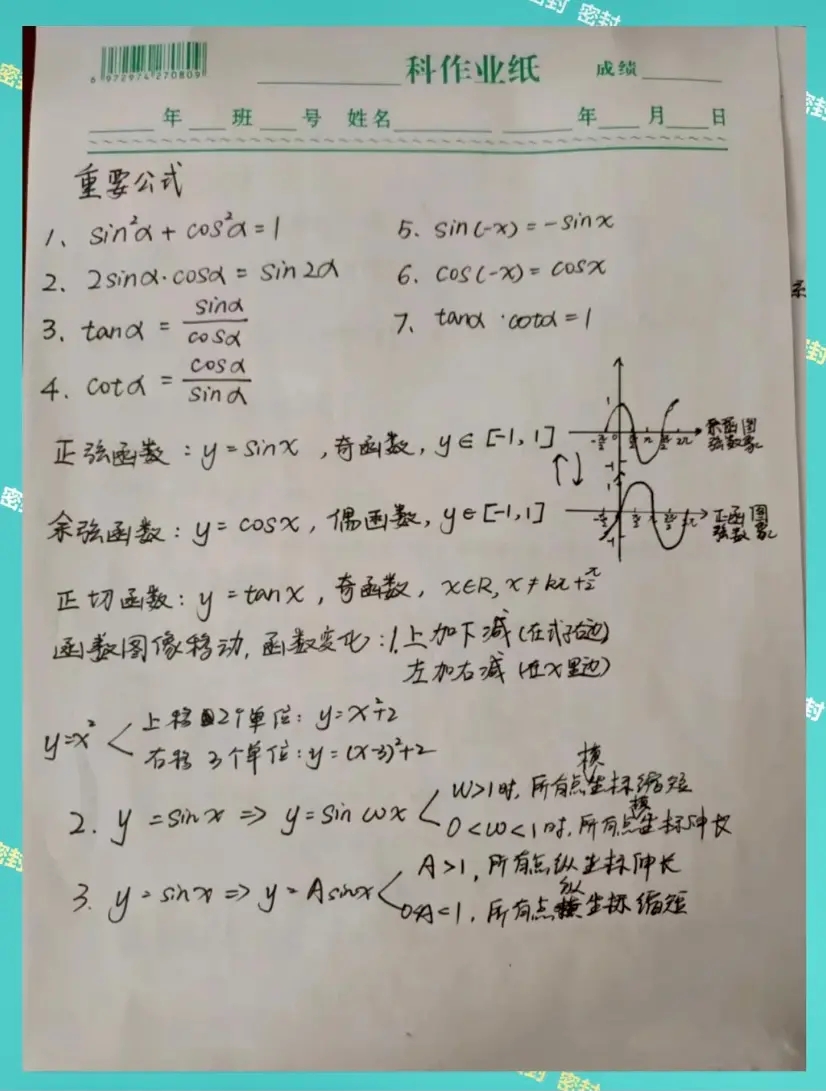 密封 密封
6 972974 270809
科作业纸 成绩
年 班 号 姓名 年 月 日
重要公式
1、sin²α + cos²α = 1
2、2sinα·cosα = sin2α
3、tanα = sinα/cosα
4、cotα = cosα/sinα
5、sin(-x) = -sinx
6、cos(-x) = cosx
7、tanα·cotα = 1
正弦函数：y = sinx，奇函数，y∈[-1, 1]
余弦函数图象
余弦函数：y = cosx，偶函数，y∈[-1,1]
正弦函数图象
正切函数：y = tanx，奇函数，x∈R, x≠kπ+π/2
函数图像移动，函数变化：1.上加下减（在式子右边）
左加右减（在x里边）
y=x²
上移2个单位：y=x²+2
右移3个单位：y=(x-3)²+2
2. y = sinx ⇒ y = sin ωx
W>1时，所有点横坐标缩短
0<ω<1时，所有点横坐标伸长
3. y = sinx ⇒ y = Asinx
A>1，所有点纵坐标伸长
0<A<1，所有点纵坐标缩短
密封
密封
密封
密封
密封
密封
密封
密封